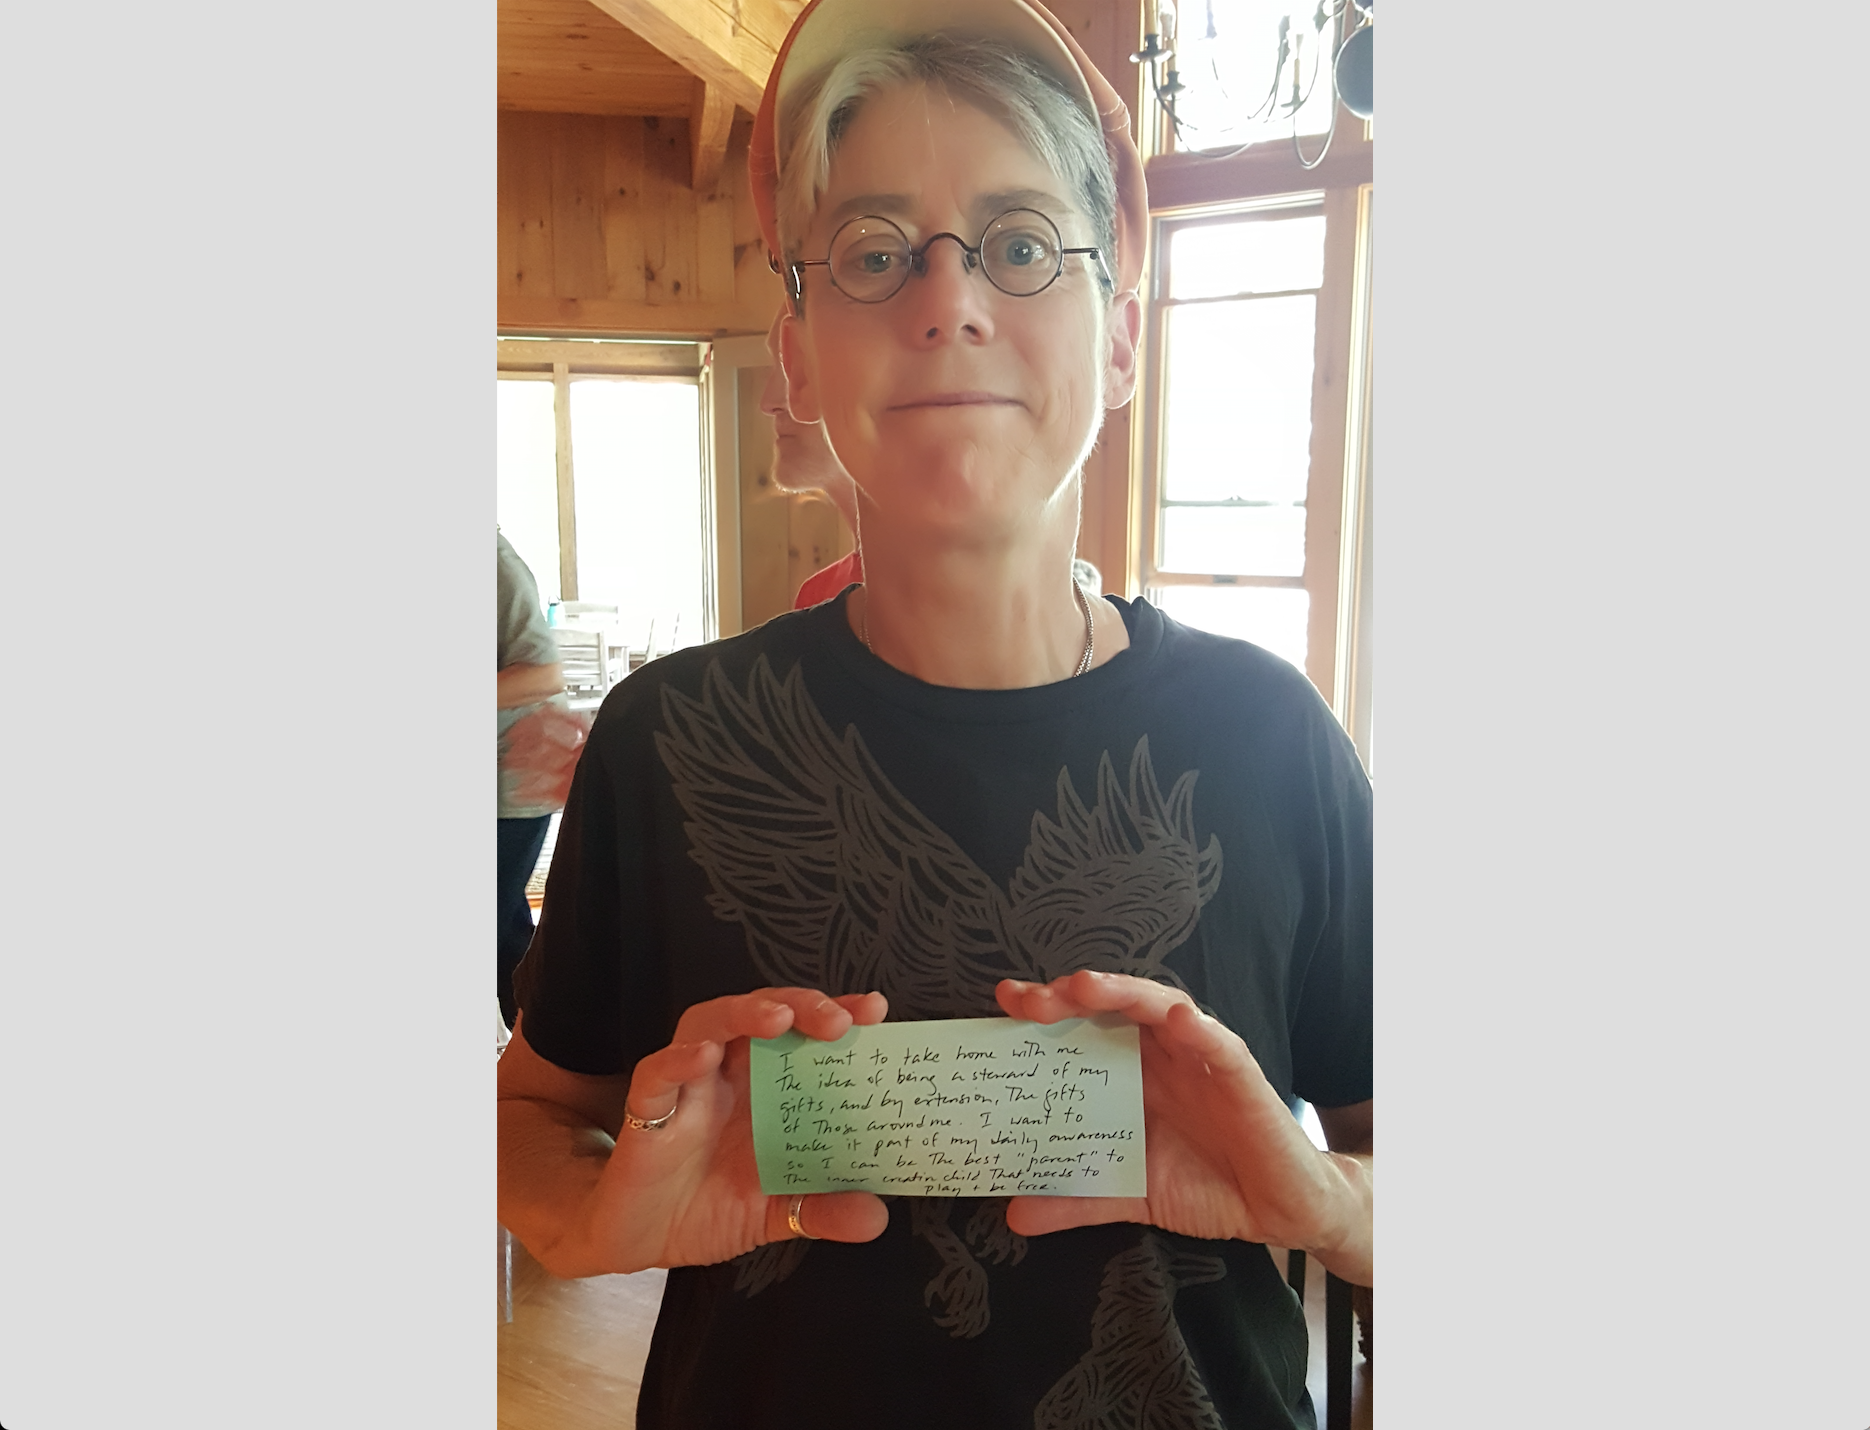 I want to take home with me
The idea of being a steward of my
gifts, and by extension, The gifts
of Those around me. I want to
make it part of my daily awareness
so I can be The best "parent" to
The inner creative child That needs to
play + be free.